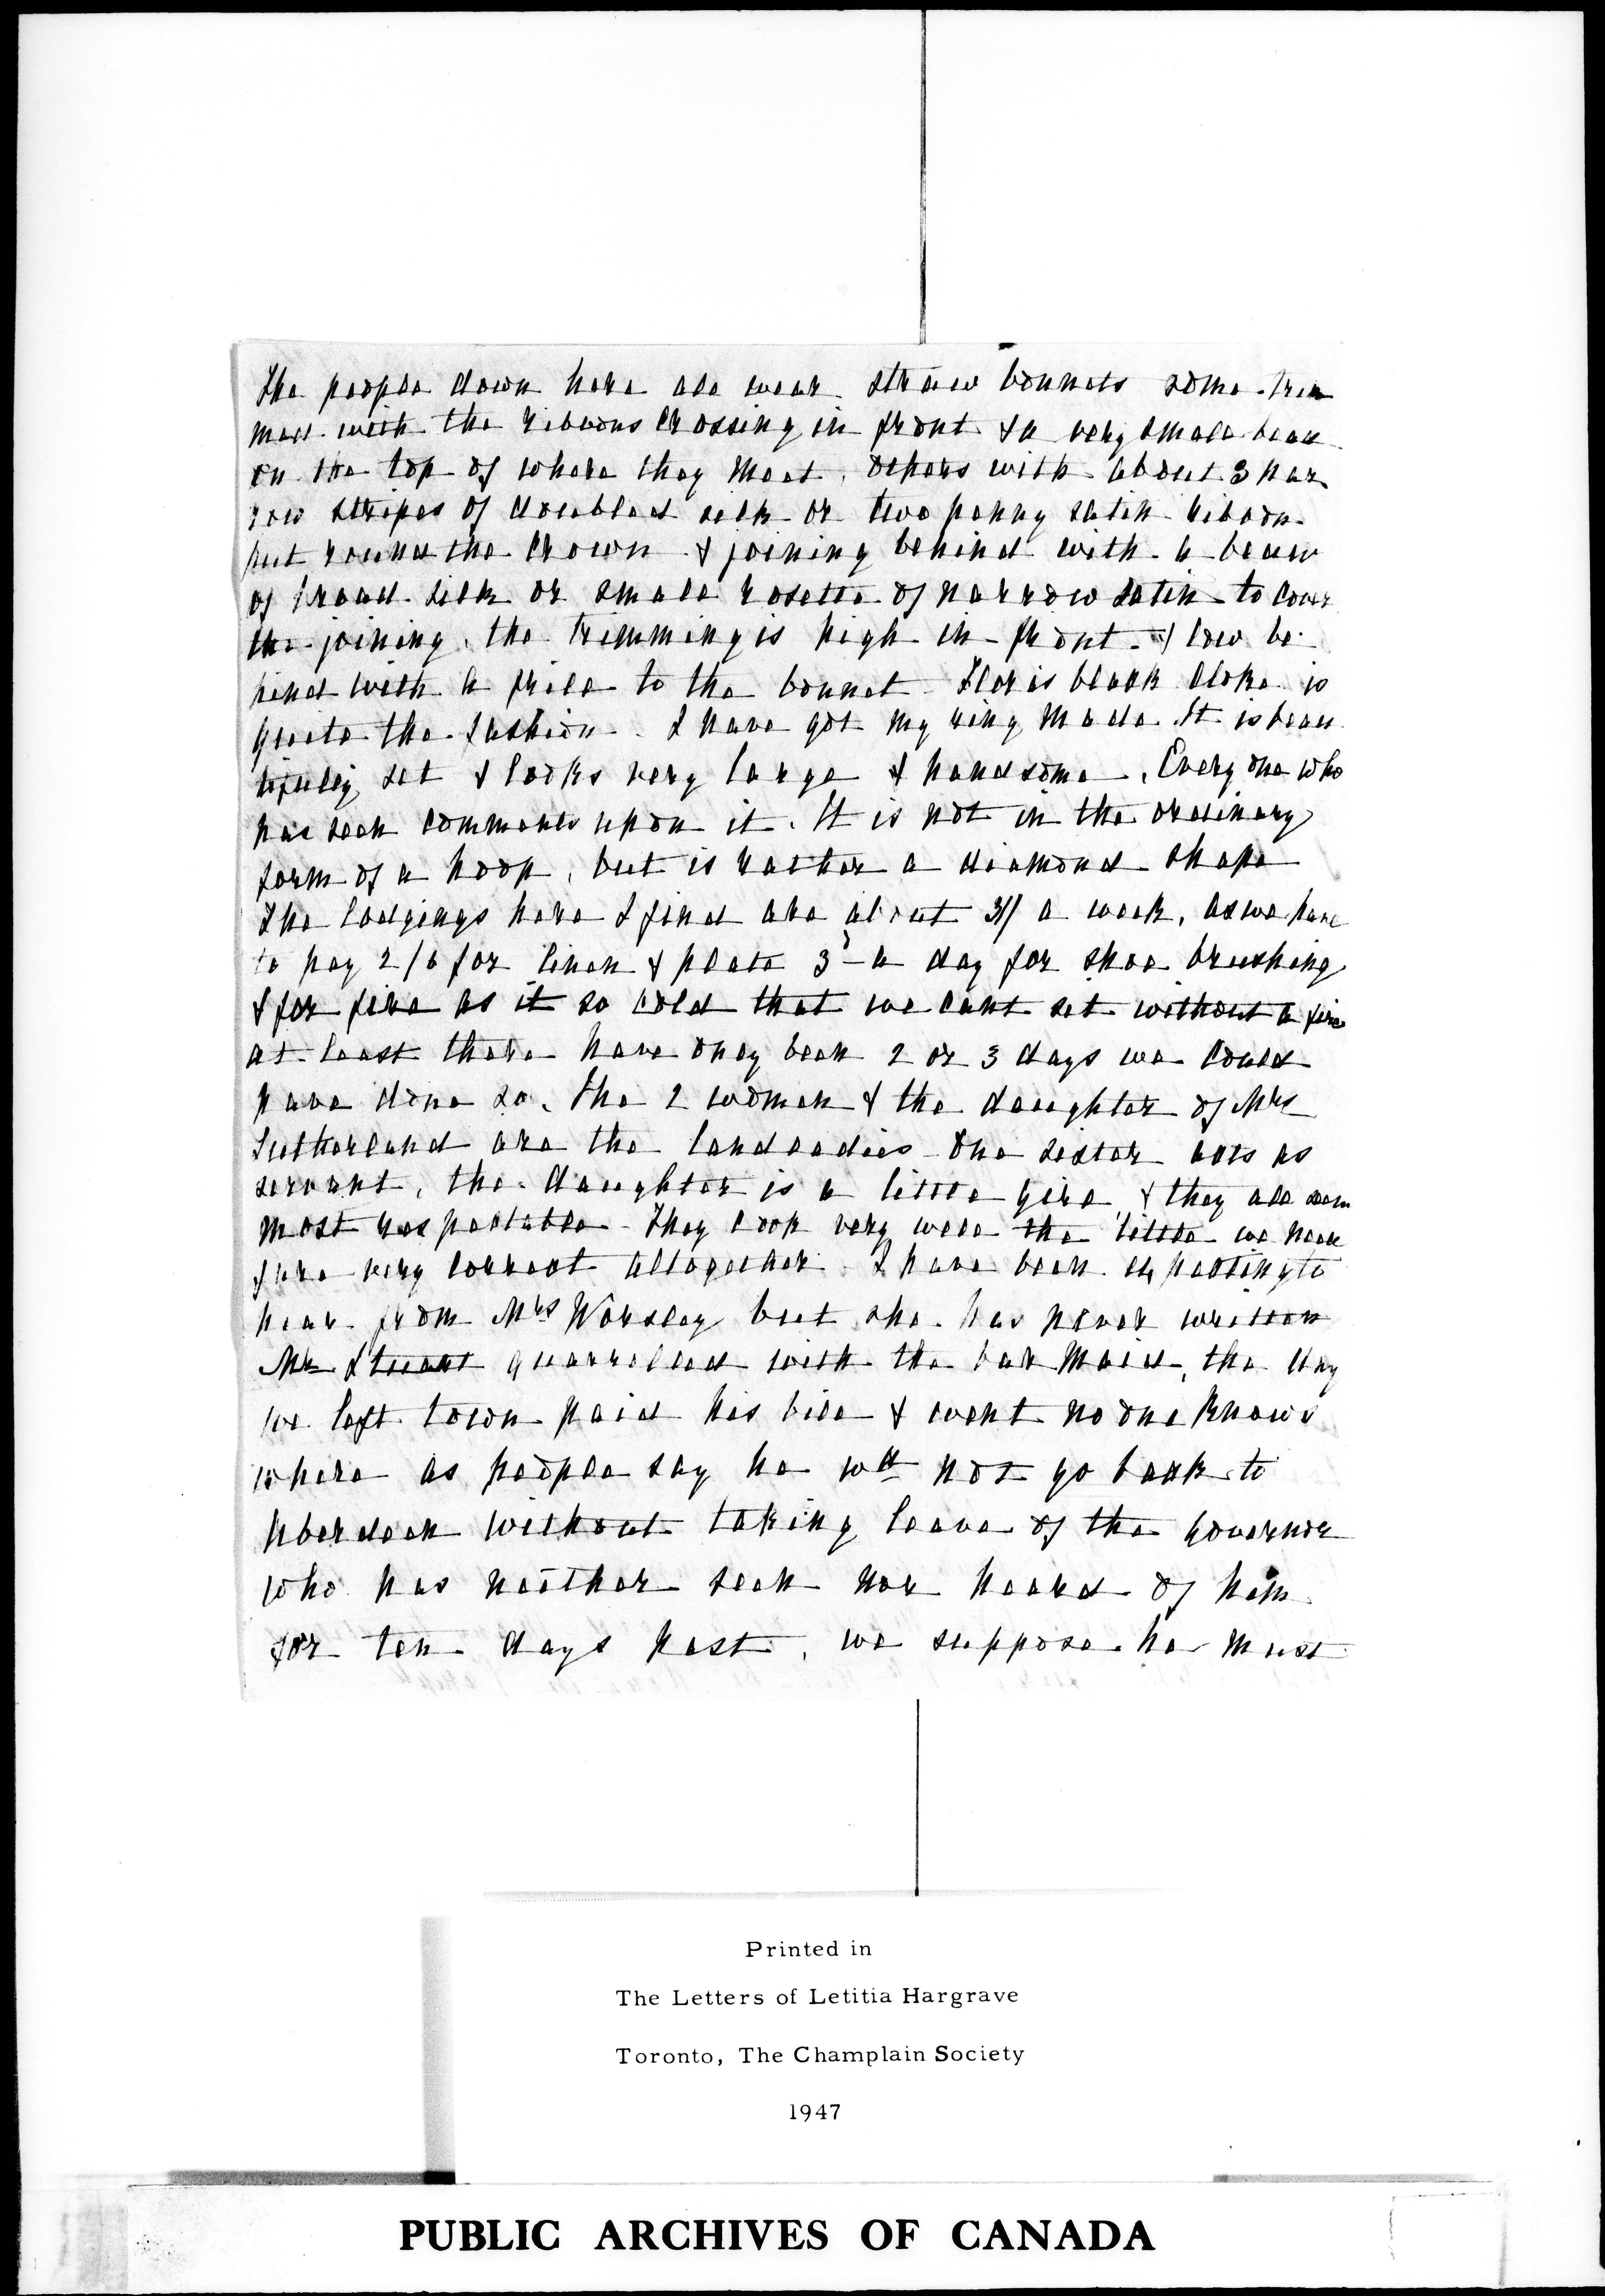 The people down here all wear straw bonnets some trim
med with the ribbons crossing in front & a very small beau
on the top of where they meet, others with about 3 nar
row stripes of doubled silk or two penny satin ribbon
put round the crown & joining behind with a beau
of broad silk or small rosette of narrow satin to cover
the joining, the trimming is high in front & low be
hind with a frill to the bonnet Flora's black cloke is
quite the fashion. I have got my ring made. It is beau
tifully set & looks very large & handsome. Every one who
has seen comments upon it. It is not in the ordinary
form of a hoop, but is rather a diamond shape
The lodgings here I find are about 31/ a week, as we have
to pay 2/6 for linen & plate 3d a day for shoe brushing
& for fire as it so cold that we cant sit without a fire
at least there have only been 2 or 3 days we could
have done so. The 2 women & the daughter of Mrs
Sutherland are the landladies One sister acts as
servant, the daughter is a little girl & they all seem
most respectable They cook very well the little we need
& are very correct altogether I have been expecting to
hear from Mrs Worsley but she has never written
Mr Stuart quarrelled with the bar maid, the day
we left town paid his bill & went no one knows
where as people say he wd not go back to
Aberdeen without taking leave of the Governor
who has neither seen nor heard of him
for ten days past, we suppose he must
Printed in
The Letters of Letitia Hargrave
Toronto, The Champlain Society
1947
PUBLIC ARCHIVES OF CANADA